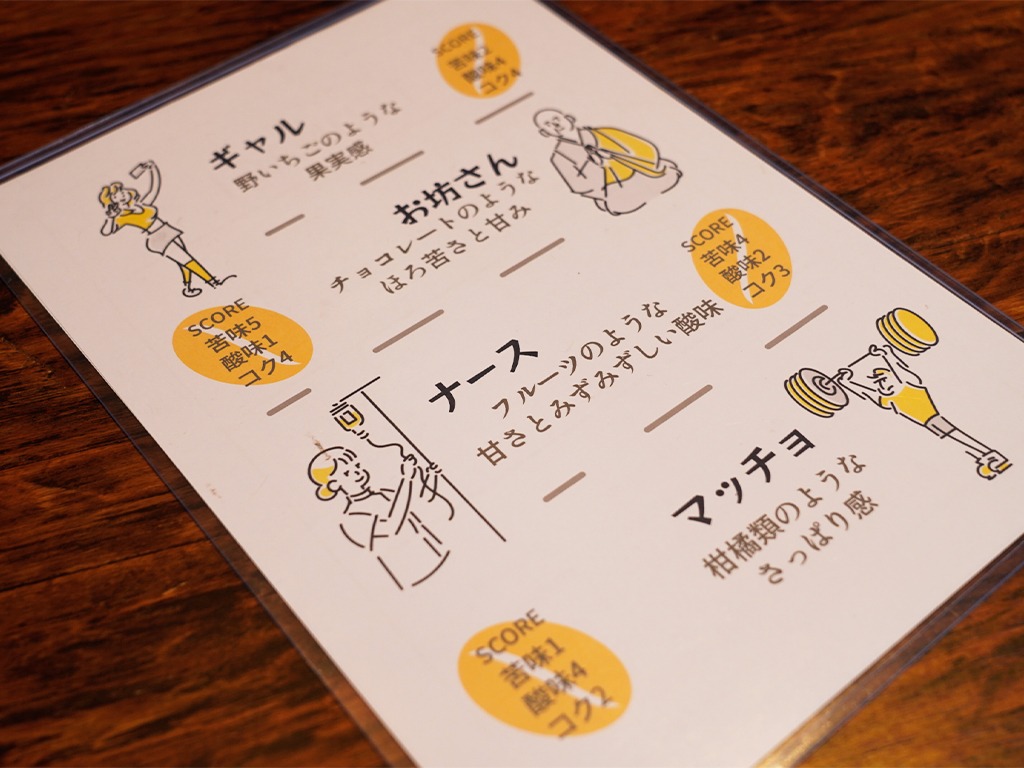 ギャル
野いちごのような
果実感
SCORE
酸味4
コク4
お坊さん
チョコレートのような
ほろ苦さと甘み
SCORE
苦味5
酸味1
コク4
ナース
フルーツのような
甘さとみずみずしい酸味
SCORE
苦味4
酸味2
コク3
マッチョ
柑橘類のような
さっぱり感
SCORE
苦味1
酸味4
コク2